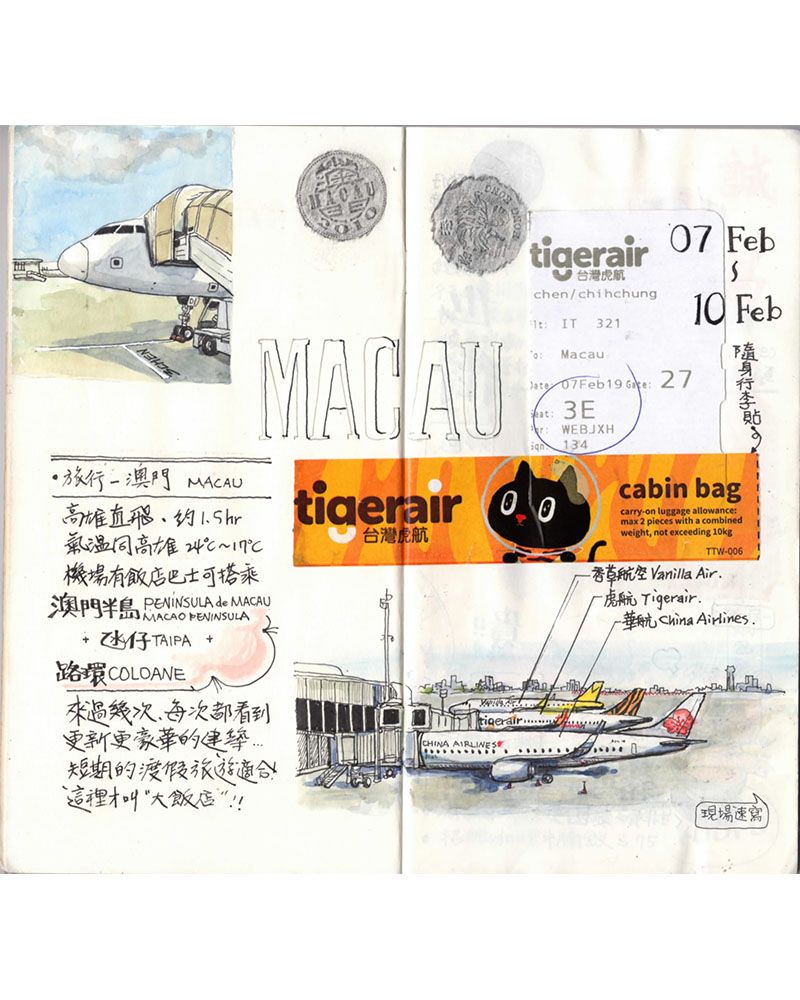 MACAU
2010
tigerair
台灣虎航
chen/chihchung
IT 321
Macau
07Feb19 Gate: 27
3E
WEBJXH
134
07 Feb
~
10 Feb
隨身行李貼
MACAU
SCHEN
tigerair
台灣虎航
cabin bag
carry-on luggage allowance:
max 2 pieces with a combined
weight, not exceeding 10kg
TTW-006
•旅行—澳門 MACAU
高雄直飛．約1.5hr
氣溫同高雄 24℃~17℃
機場有飯店巴士可搭乘
澳門半島 PENÍNSULA de MACAU
MACAO PENINSULA
+ 氹仔 TAIPA +
路環 COLOANE
來過幾次、每次都看到
更新更豪華的建築...
短期的渡假旅遊適合!
這裡才叫"大飯店"!!
香草航空 Vanilla Air.
虎航 Tigerair.
華航 China Airlines.
Vanilla Air
tigerair
CHINA AIRLINES
現場速寫